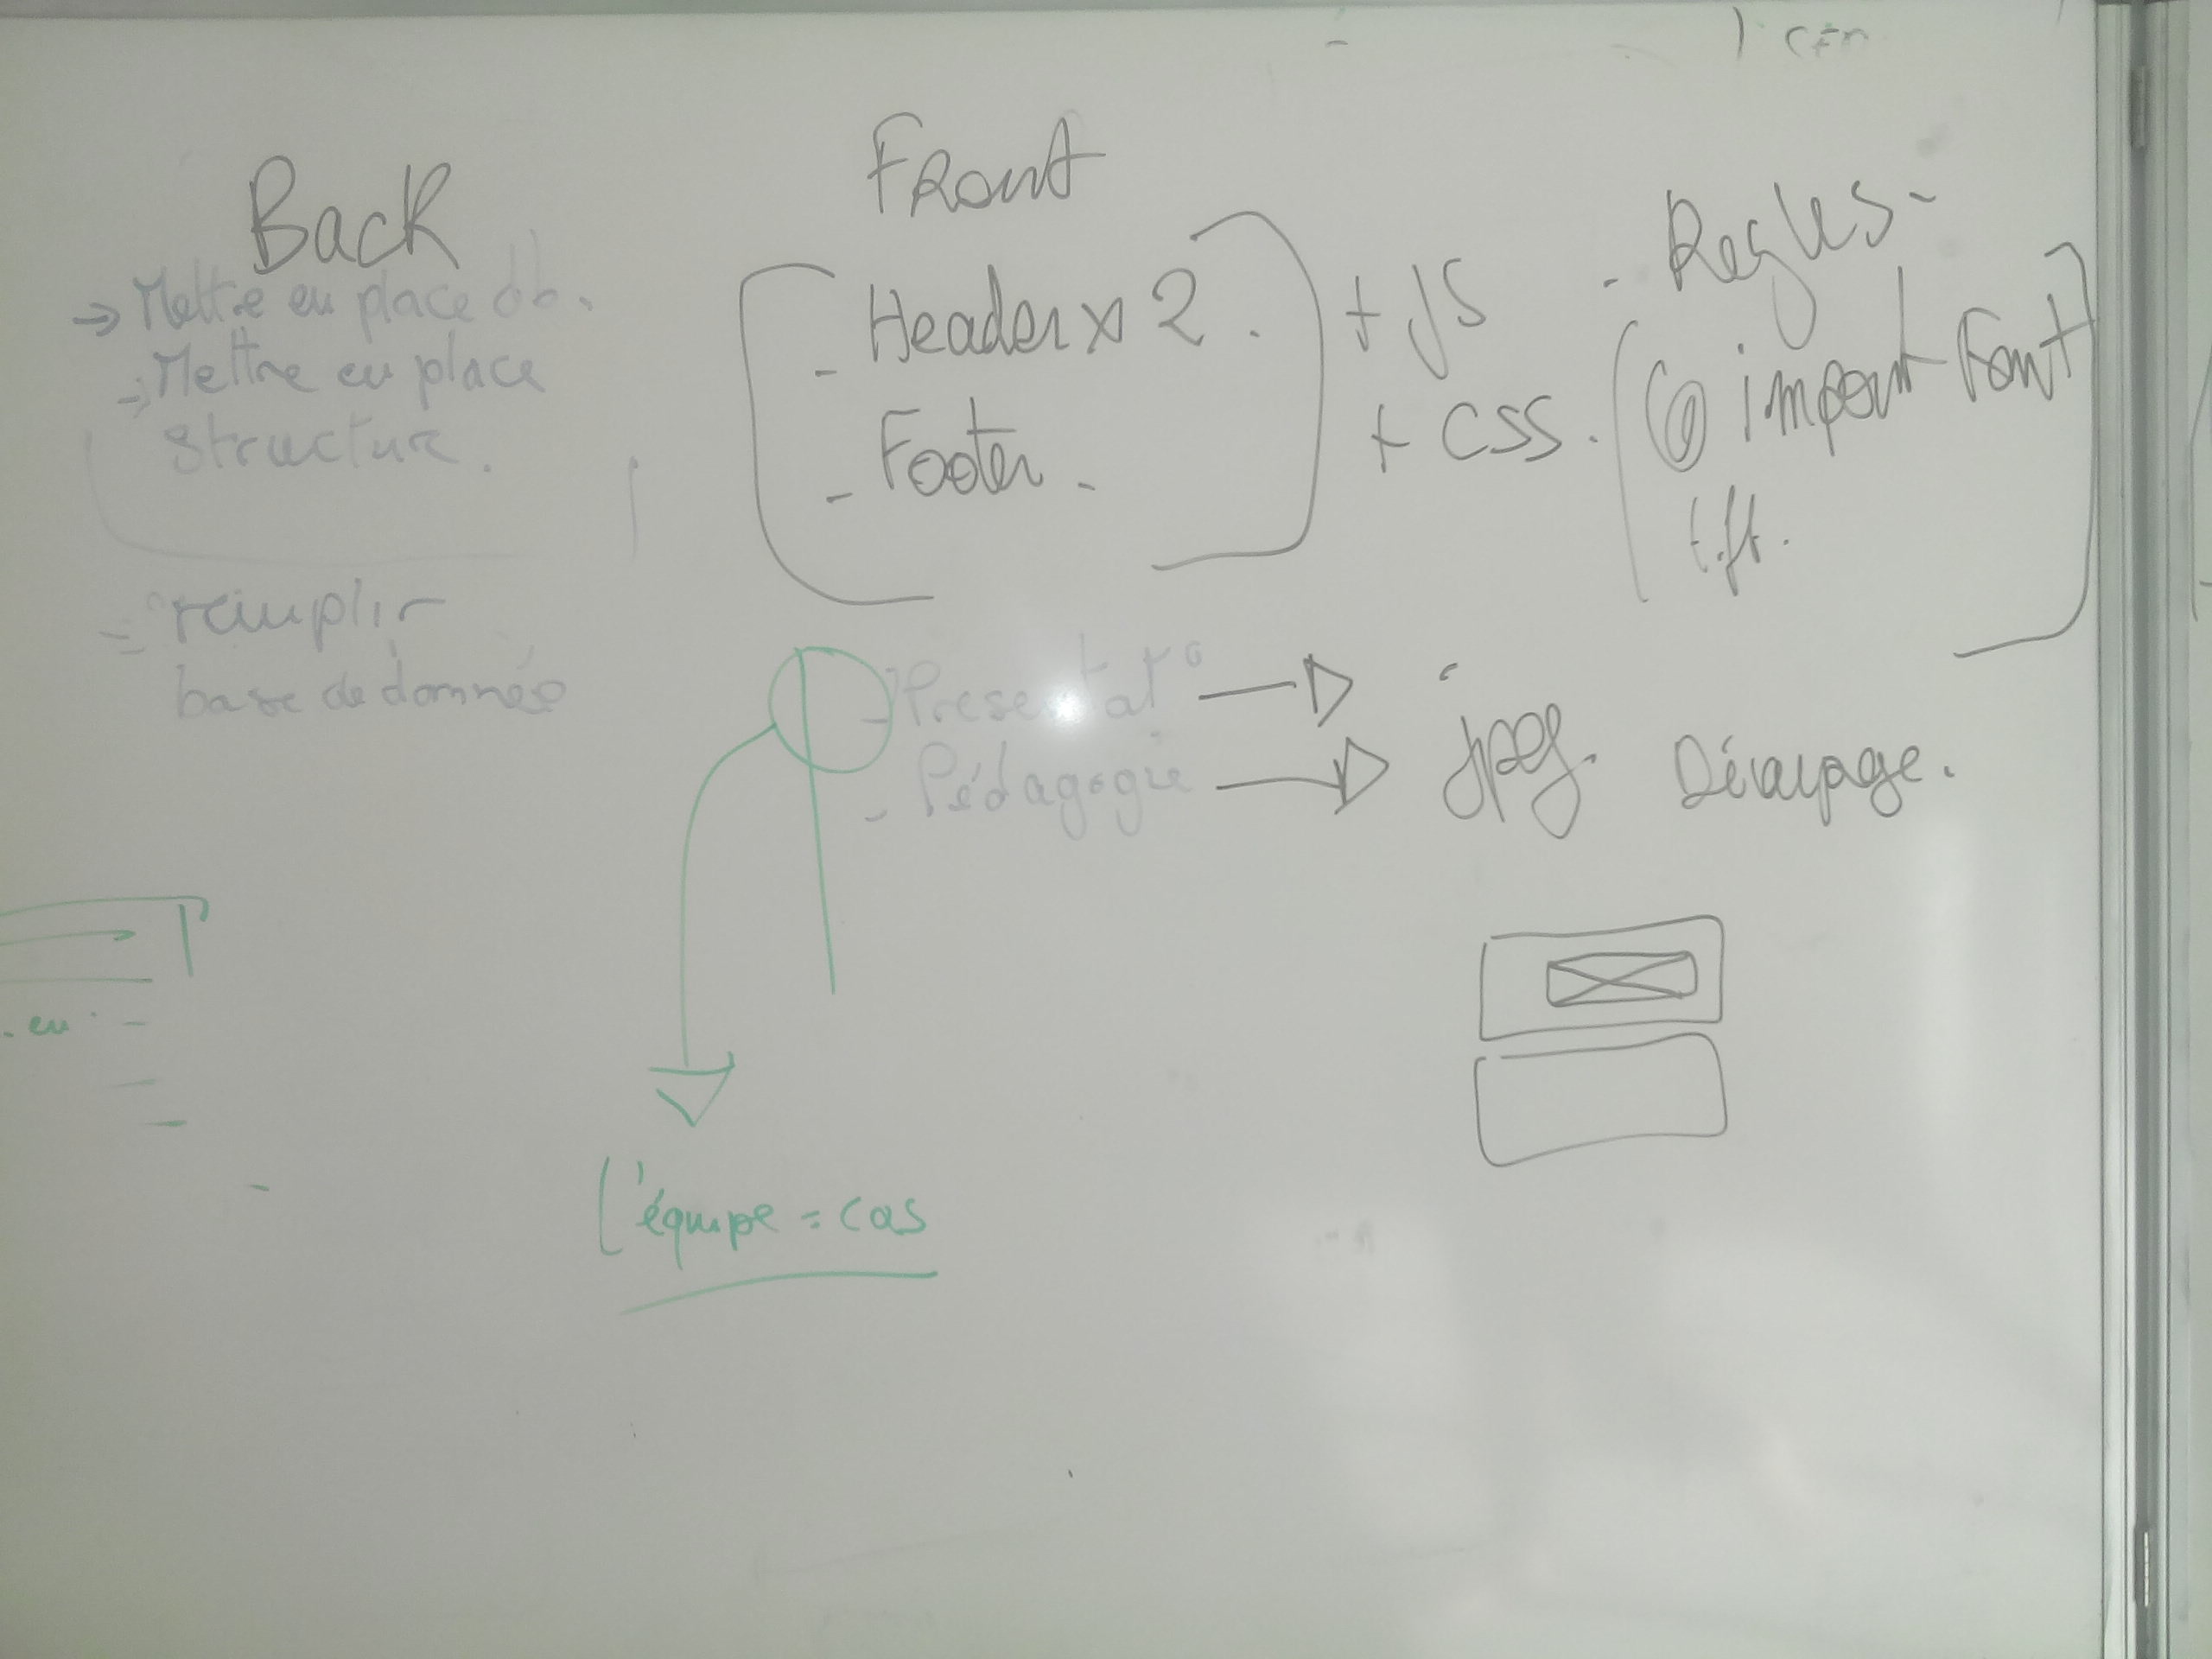 Back
→ Mettre en place db.
→ Mettre en place
structure.
= remplir
base de donnée
Front
- Header x 2.
- Footer.
+ JS
+ CSS.
- Regles -
@ import Font
t.ft.
- Presentat°
- Pédagogie
jpeg. Découpage.
. en
l'équipe = cas